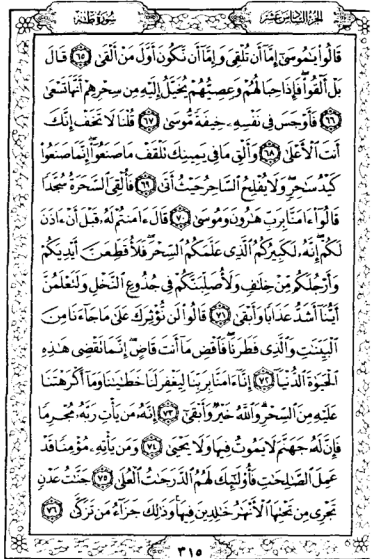 سُورَةُ طه
الجُزْءُ السَّادِسَ عَشَرَ
قَالُوا۟ يَٰمُوسَىٰٓ إِمَّآ أَن تُلْقِىَ وَإِمَّآ أَن نَّكُونَ أَوَّلَ مَنْ أَلْقَىٰ ٦٥ قَالَ
بَلْ أَلْقُوا۟ فَإِذَا حِبَالُهُمْ وَعِصِيُّهُمْ يُخَيَّلُ إِلَيْهِ مِن سِحْرِهِمْ أَنَّهَا تَسْعَىٰ
٦٦ فَأَوْجَسَ فِى نَفْسِهِۦ خِيفَةً مُّوسَىٰ ٦٧ قُلْنَا لَا تَخَفْ إِنَّكَ
أَنتَ ٱلْأَعْلَىٰ ٦٨ وَأَلْقِ مَا فِى يَمِينِكَ تَلْقَفْ مَا صَنَعُوٓا۟ إِنَّمَا صَنَعُوا۟
كَيْدُ سَٰحِرٍ وَلَا يُفْلِحُ ٱلسَّاحِرُ حَيْثُ أَتَىٰ ٦٩ فَأُلْقِىَ ٱلسَّحَرَةُ سُجَّدًا
قَالُوٓا۟ ءَامَنَّا بِرَبِّ هَٰرُونَ وَمُوسَىٰ ٧٠ قَالَ ءَامَنتُمْ لَهُۥ قَبْلَ أَنْ ءَاذَنَ
لَكُمْ إِنَّهُۥ لَكَبِيرُكُمُ ٱلَّذِى عَلَّمَكُمُ ٱلسِّحْرَ فَلَأُقَطِّعَنَّ أَيْدِيَكُمْ
وَأَرْجُلَكُم مِّنْ خِلَٰفٍ وَلَأُصَلِّبَنَّكُمْ فِى جُذُوعِ ٱلنَّخْلِ وَلَتَعْلَمُنَّ
أَيُّنَآ أَشَدُّ عَذَابًا وَأَبْقَىٰ ٧١ قَالُوا۟ لَن نُّؤْثِرَكَ عَلَىٰ مَا جَآءَنَا مِنَ
ٱلْبَيِّنَٰتِ وَٱلَّذِى فَطَرَنَا فَٱقْضِ مَآ أَنتَ قَاضٍ إِنَّمَا تَقْضِى هَٰذِهِ
ٱلْحَيَوٰةَ ٱلدُّنْيَآ ٧٢ إِنَّآ ءَامَنَّا بِرَبِّنَا لِيَغْفِرَ لَنَا خَطَٰيَٰنَا وَمَآ أَكْرَهْتَنَا
عَلَيْهِ مِنَ ٱلسِّحْرِ وَٱللَّهُ خَيْرٌ وَأَبْقَىٰٓ ٧٣ إِنَّهُۥ مَن يَأْتِ رَبَّهُۥ مُجْرِمًا
فَإِنَّ لَهُۥ جَهَنَّمَ لَا يَمُوتُ فِيهَا وَلَا يَحْيَىٰ ٧٤ وَمَن يَأْتِهِۦ مُؤْمِنًا قَدْ
عَمِلَ ٱلصَّٰلِحَٰتِ فَأُو۟لَٰٓئِكَ لَهُمُ ٱلدَّرَجَٰتُ ٱلْعُلَىٰ ٧٥ جَنَّٰتُ عَدْنٍ
تَجْرِى مِن تَحْتِهَا ٱلْأَنْهَٰرُ خَٰلِدِينَ فِيهَا وَذَٰلِكَ جَزَآءُ مَن تَزَكَّىٰ ٧٦
٣١٥